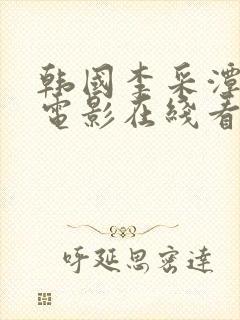 韩國李采潭
電影在綫看
呼延思密達